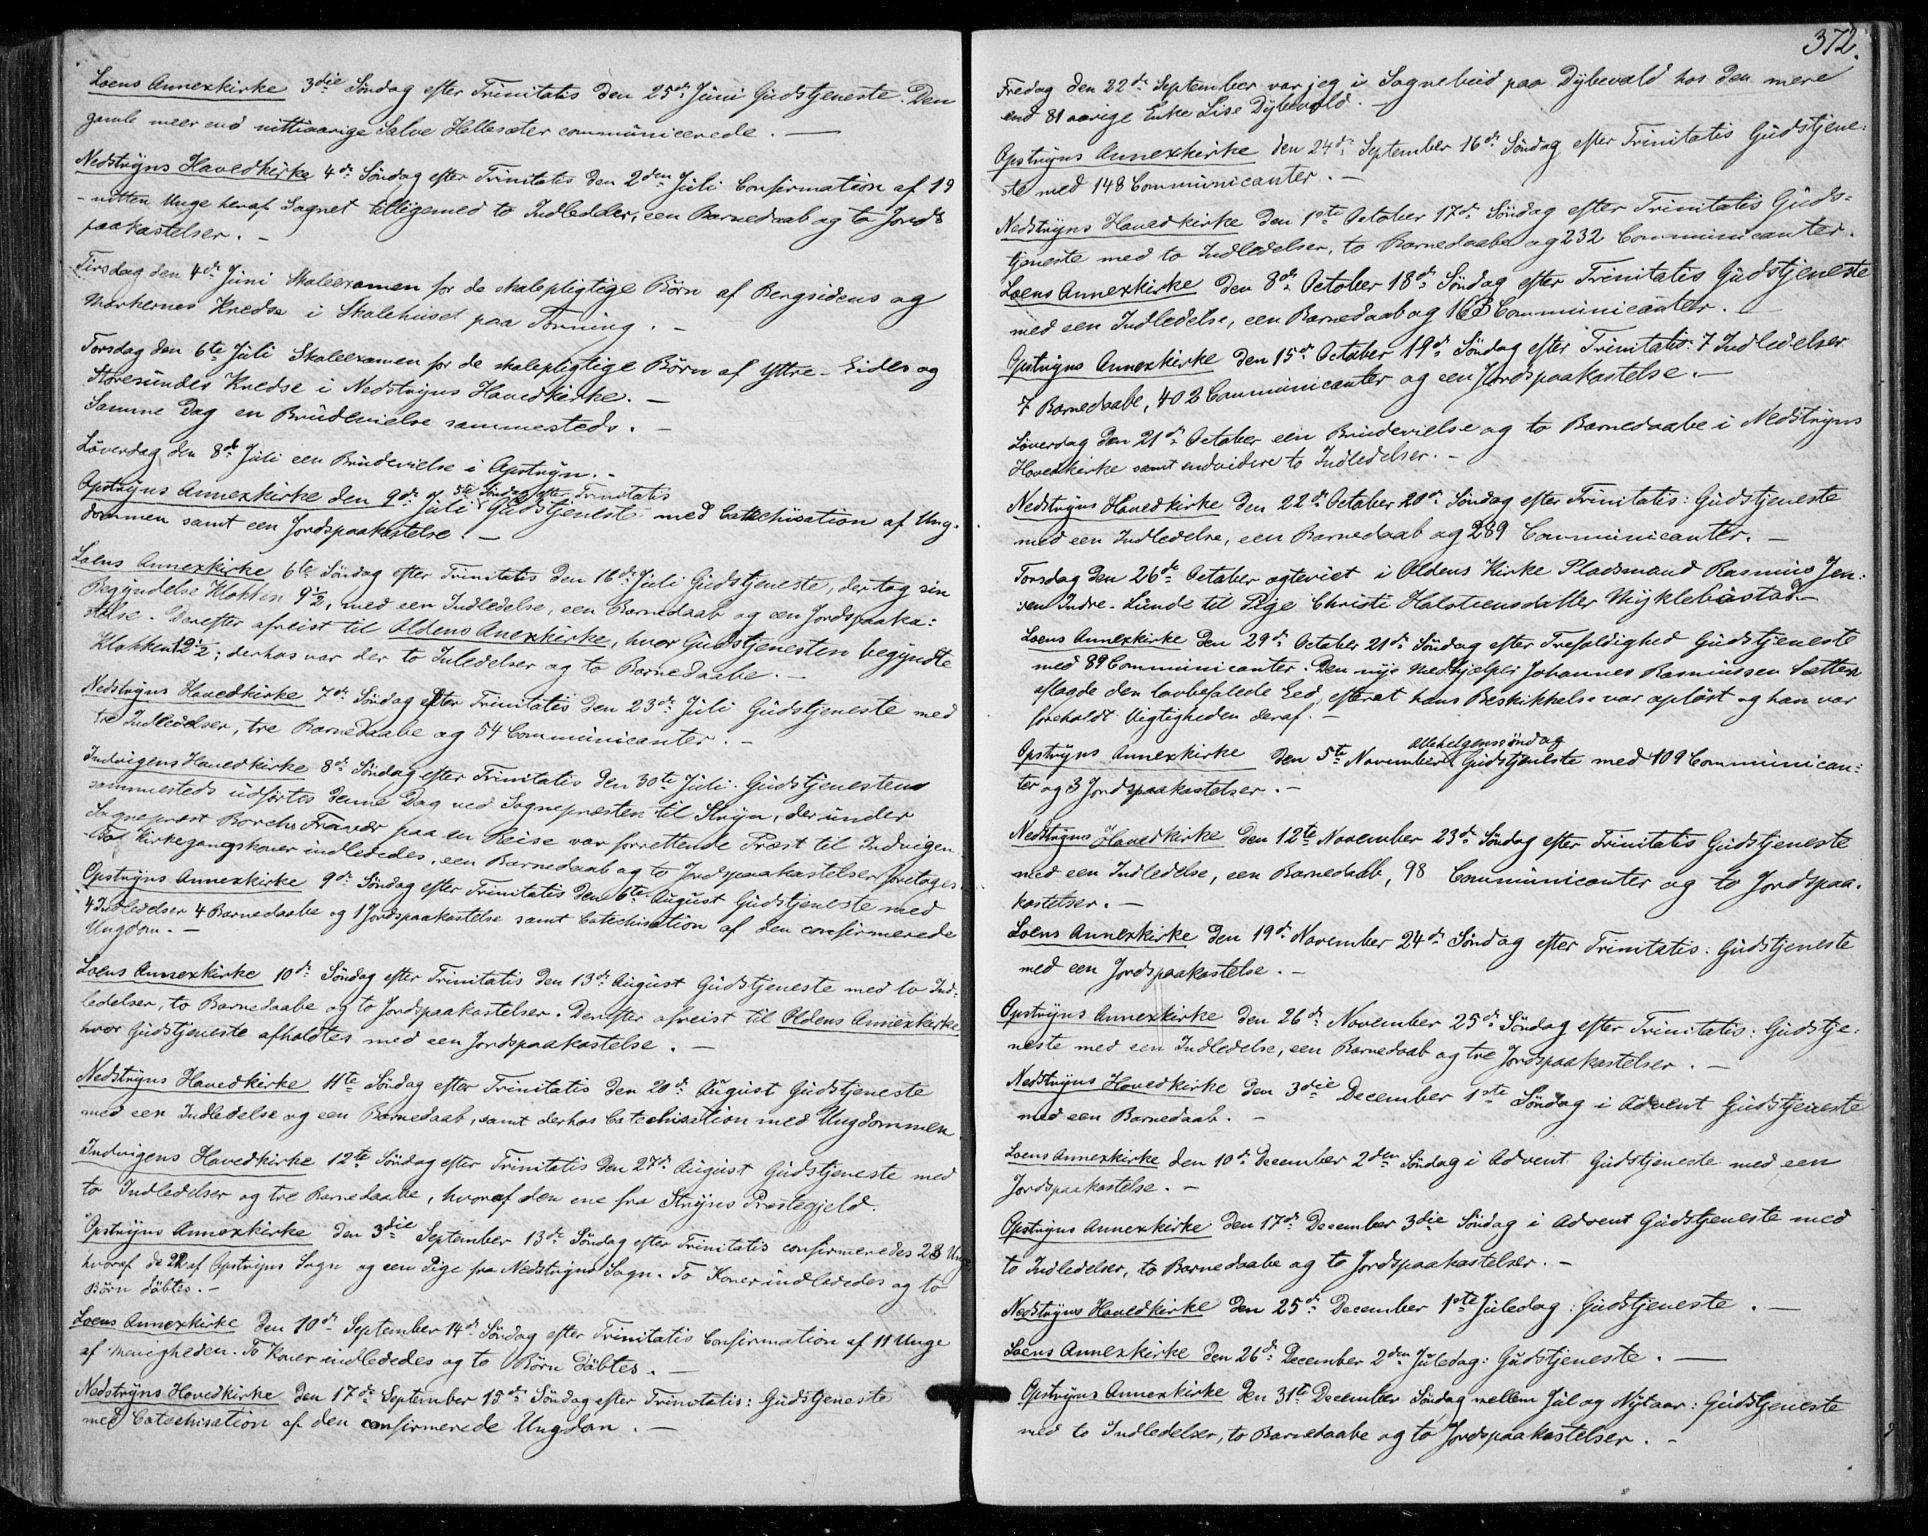 Loens Annexkirke 3die Søndag efter Trinitatis den 25de Juni Gudstjeneste. Den
gamle meer end nittiaarige Salve Hellesæter communicerede. —
Nedstryns Hovedkirke 4de Søndag efter Trinitatis den 2den Juli Confirmation af 19
- nitten Unge heraf Sognet tilligemed to Indledelser, een Barnedaab og to Jords
paakastelser. —
Tirsdag den 4de Juni Skoleexamen for de skolepligtige Børn af Bergsidens og
Markernes Kredse i Skolehuset paa Tonning. —
Torsdag den 6te Juli Skoleexamen for de skolepligtige Børn af Yttre-Eides og
Storesundes Kredse i Nedstryns Hovedkirke. —
Samme Dag en Brudevielse sammesteds. —
Løverdag den 8de Juli een Brudevielse i Opstryn. —
Opstryns Annexkirke den 9de Juli 5te Søndag efter Trinitatis Gudstjeneste med Catechisation af Ung-
dommen samt een Jordspaakastelse. —
Loens Annexkirke 6te Søndag efter Trinitatis den 16de Juli Gudstjeneste, der tog sin
Begyndelse Klokken 9½, med een Indledelse, een Barnedaab og een Jordspaaka:
stelse. Derefter afreist til Oldens Anexkirke, hvor Gudstjenesten begyndte
Klokken 12½; derhos var der to Inledelser og to Barnedaabe. —
Nedstryns Hovedkirke 7de Søndag efter Trinitatis den 23de Juli Gudstjeneste med
tre Indledelser, tre Barnedaabe og 54 Communicanter. —
Indvigens Hovedkirke 8de Søndag efter Trinitatis den 30te Juli. Gudstjenesten
sammesteds udførtes denne Dag ved Sognepræsten til Stryn, der under
Sognepræst Borchs Fravær paa en Reise var forrettende Præst til Indvigen.
To Kirkegangskoner indlededes, een Barnedaab og to Jordspaakastelser foretoges.
Opstryns Annexkirke 9de Søndag efter Trinitatis den 6te August Gudstjeneste med
4 Indledelser 4 Barnedaabe og 1 Jordspaakastelse samt Catechisation af den confirmerede
Ungdom. —
Loens Annexkirke 10de Søndag efter Trinitatis den 13de August Gudstjeneste med to Ind-
ledelser, to Barnedaabe og to Jordspaakastelser. Derefter afreist til Oldens Annexkirke
hvor Gudstjeneste afholdtes med een Jordspaakastelse. —
Nedstryns Hovedkirke 11te Søndag efter Trinitatis den 20de August Gudstjeneste
med een Indledelse og een Barnedaab, samt derhos Catechisation med Ungdommen
Indvigens Hovedkirke 12te Søndag efter Trinitatis den 27de August Gudstjeneste med
to Indledelser og tre Barnedaabe, hvoraf den ene fra Stryns Præstegjeld.
Opstryns Annexkirke den 3die September 13de Søndag efter Trinitatis confirmeredes 23 Unge
hvoraf de 22 af Opstryns Sogn og een Pige fra Nedstryns Sogn. To Koner indlededes og to
Børn døbtes. —
Loens Annexkirke den 10de September 14de Søndag efter Trinitatis Confirmation af 11 Unge
af Menigheden. To Koner indlededes og to Børn døbtes. —
Nedstryns Hovedkirke den 17de September 15de Søndag efter Trinitatis: Gudstjeneste
med Catechisation af den confirmerede Ungdom. —
372.
Fredag den 22de September var jeg i Sognebud paa Dybevold hos den mere
end 81 aarige Enke Lise Dybevold. —
Opstryns Annexkirke den 24de September 16de Søndag efter Trinitatis Gudstjene:
ste med 148 Communicanter. —
Nedstryns Hovedkirke den 1ste October 17de Søndag efter Trinitatis Guds-
tjeneste med to Indledelser, to Barnedaabe og 232 Communicanter.
Loens Annexkirke den 8de October 18de Søndag efter Trinitatis Gudstjeneste
med een Indledelse, een Barnedaab og 163 Communicanter. —
Opstryns Annexkirke den 15de October 19de Søndag efter Trinitatis: 7 Indledelser
7 Barnedaabe, 402 Communicanter og een Jordspaakastelse. —
Løverdag den 21de October een Brudevielse og to Barnedaabe i Nedstryns
Hovedkirke samt endvidere to Indledelser. —
Nedstryns Hovedkirke den 22de October 20de Søndag efter Trinitatis: Gudstjeneste
med een Indledelse, een Barnedaab og 289 Communicanter. —
Torsdag den 26de October ægteviet i Oldens Kirke Pladsmand Rasmus Jen:
sen Indre-Lunde til Pige Christi Halsteensdatter Myklebustad. —
Loens Annexkirke den 29de October 21de Søndag efter Trefoldighed Gudstjeneste
med 89 Communicanter. Den nye Medhjelper Johannes Rasmussen Sætten
aflagde den lovbefalede Eed, efterat hans Beskikkelse var oplæst og han var
foreholdt Vigtigheden deraf. —
Opstryns Annexkirke den 5te November Allehelgenssøndag Gudstjeneste med 109 Communican:
ter og 3 Jordspaakastelser. —
Nedstryns Hovedkirke den 12te November 23de Søndag efter Trinitatis Gudstjeneste
med een Indledelse, een Barnedaab, 98 Communicanter og to Jordspaa-
kastelser. —
Loens Annexkirke den 19de November 24de Søndag efter Trinitatis: Gudstjeneste
med een Jordspaakastelse. —
Opstryns Annexkirke den 26de November 25de Søndag efter Trinitatis: Gudstje:
neste med een Indledelse, een Barnedaab og tre Jordspaakastelser. —
Nedstryns Hovedkirke den 3die December 1ste Søndag i Advent Gudstjeneste
med een Barnedaab. —
Loens Annexkirke den 10de December 2den Søndag i Advent Gudstjeneste med een
Jordspaakastelse. —
Opstryns Annexkirke den 17de December 3die Søndag i Advent Gudstjeneste med
to Indledelser, to Barnedaabe og to Jordspaakastelser. —
Nedstryns Hovedkirke den 25de December 1ste Juledag: Gudstjeneste. —
Loens Annexkirke den 26de December 2den Juledag: Gudstjeneste. —
Opstryns Annexkirke den 31te December Søndag mellem Jul og Nytaar: Gudstjeneste
med to Indledelser, to Barnedaabe og to Jordspaakastelser. —